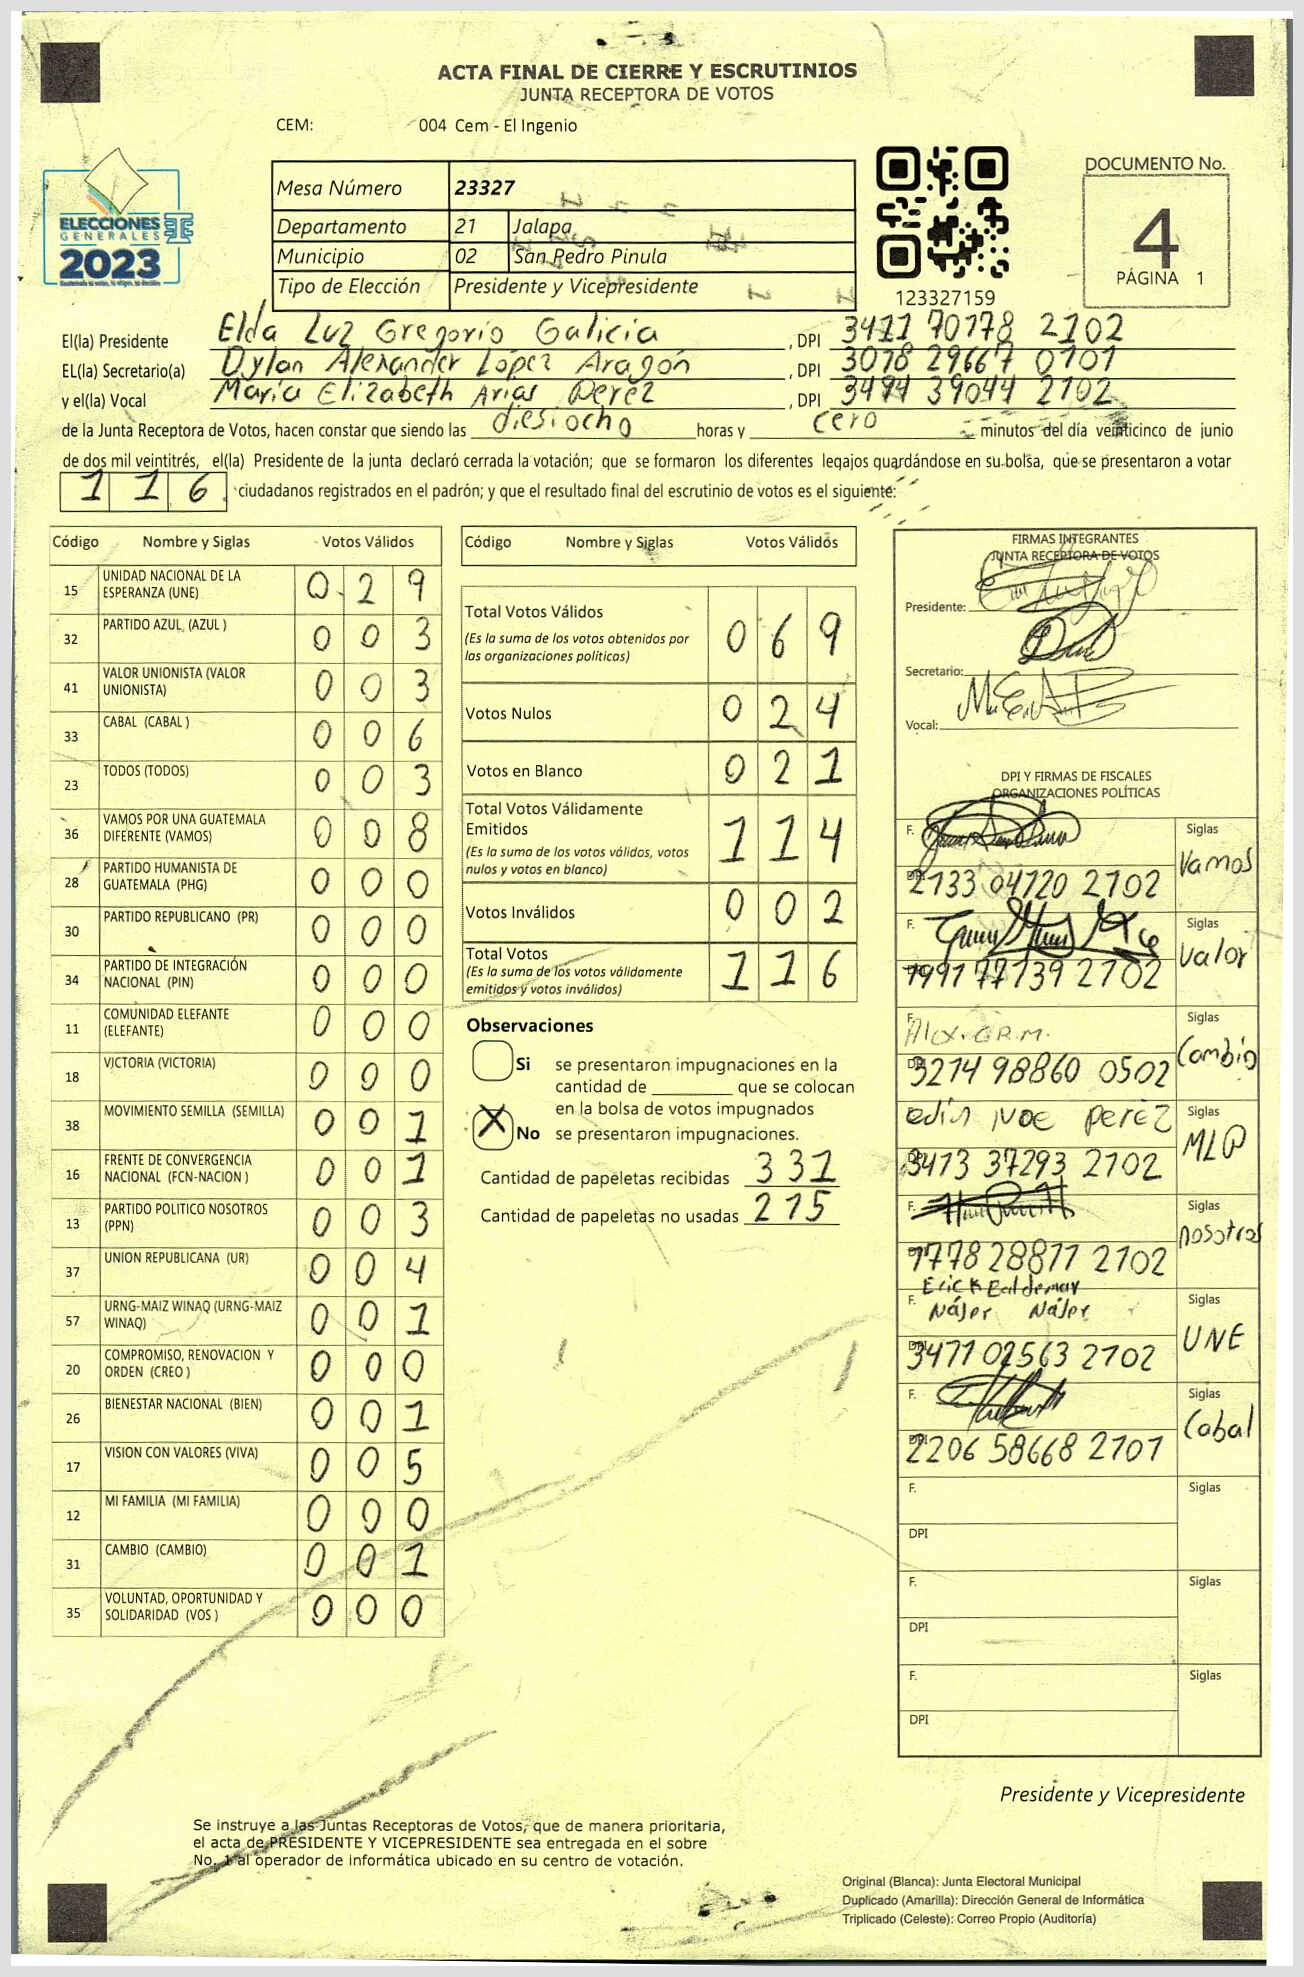 ACTA FINAL DE CIERRE Y ESCRUTINIOS
JUNTA RECEPTORA DE VOTOS
CEM: 004 Cem - El Ingenio
ELECCIONES
GENERALES
2023
Mesa Número 23327
Departamento 21 Jalapa
Municipio 02 San Pedro Pinula
Tipo de Elección Presidente y Vicepresidente
123327159
DOCUMENTO No.
4
PÁGINA 1
El(la) Presidente Elda Luz Gregorio Galicia, DPI 3411 70178 2102
EL(la) Secretario(a) Dylan Alexander López Aragón, DPI 3018 29667 0101
y el(la) Vocal María Elizabeth Arias Perez, DPI 3494 39044 2102
de la Junta Receptora de Votos, hacen constar que siendo las diesiocho horas y cero minutos del día veinticinco de junio
de dos mil veintitrés, el(la) Presidente de la junta declaró cerrada la votación; que se formaron los diferentes legajos guardándose en su bolsa, que se presentaron a votar
116 ciudadanos registrados en el padrón; y que el resultado final del escrutinio de votos es el siguiente:
Código Nombre y Siglas Votos Válidos
15 UNIDAD NACIONAL DE LA ESPERANZA (UNE) 0 2 9
32 PARTIDO AZUL (AZUL ) 0 0 3
41 VALOR UNIONISTA (VALOR UNIONISTA) 0 0 3
33 CABAL (CABAL ) 0 0 6
23 TODOS (TODOS) 0 0 3
36 VAMOS POR UNA GUATEMALA DIFERENTE (VAMOS) 0 0 8
28 PARTIDO HUMANISTA DE GUATEMALA (PHG) 0 0 0
30 PARTIDO REPUBLICANO (PR) 0 0 0
34 PARTIDO DE INTEGRACIÓN NACIONAL (PIN) 0 0 0
11 COMUNIDAD ELEFANTE (ELEFANTE) 0 0 0
18 VICTORIA (VICTORIA) 0 0 0
38 MOVIMIENTO SEMILLA (SEMILLA) 0 0 1
16 FRENTE DE CONVERGENCIA NACIONAL (FCN-NACION ) 0 0 1
13 PARTIDO POLITICO NOSOTROS (PPN) 0 0 3
37 UNION REPUBLICANA (UR) 0 0 4
57 URNG-MAIZ WINAQ (URNG-MAIZ WINAQ) 0 0 1
20 COMPROMISO, RENOVACION Y ORDEN (CREO ) 0 0 0
26 BIENESTAR NACIONAL (BIEN) 0 0 1
17 VISION CON VALORES (VIVA) 0 0 5
12 MI FAMILIA (MI FAMILIA) 0 0 0
31 CAMBIO (CAMBIO) 0 0 1
35 VOLUNTAD, OPORTUNIDAD Y SOLIDARIDAD (VOS ) 0 0 0
Código Nombre y Siglas Votos Válidos
Total Votos Válidos 0 6 9
(Es la suma de los votos obtenidos por
las organizaciones politicas)
Votos Nulos 0 2 4
Votos en Blanco 0 2 1
Total Votos Válidamente
Emitidos 1 1 4
(Es la suma de los votos válidos, votos
nulos y votos en blanco)
Votos Inválidos 0 0 2
Total Votos 1 1 6
(Es la suma de los votos válidamente
emitidos y votos inválidos)
Observaciones
Si se presentaron impugnaciones en la
cantidad de ________ que se colocan
en la bolsa de votos impugnados
X No se presentaron impugnaciones.
Cantidad de papeletas recibidas 331
Cantidad de papeletas no usadas 215
FIRMAS INTEGRANTES
JUNTA RECEPTORA DE VOTOS
Presidente:
Secretario:
Vocal:
DPI Y FIRMAS DE FISCALES
ORGANIZACIONES POLÍTICAS
F. Siglas Vamos
DPI 2133 04720 2102
F. Siglas Valor
DPI 1991 77139 2102
F. Alex. G.R.M. Siglas Cambio
DPI 3214 98860 0502
Edin Noe Perez Siglas MLP
DPI 3413 37293 2102
F. Siglas nosotros
DPI 1778 28877 2102
Erick Baldemar
F. Nájer Nájer Siglas UNE
DPI 3471 02563 2102
F. Siglas Cabal
DPI 2206 58668 2101
F. Siglas
DPI
F. Siglas
DPI
F. Siglas
DPI
Presidente y Vicepresidente
Se instruye a las Juntas Receptoras de Votos, que de manera prioritaria,
el acta de PRESIDENTE Y VICEPRESIDENTE sea entregada en el sobre
No. 1 al operador de informática ubicado en su centro de votación.
Original (Blanca): Junta Electoral Municipal
Duplicado (Amarilla): Dirección General de Informática
Triplicado (Celeste): Correo Propio (Auditoría)